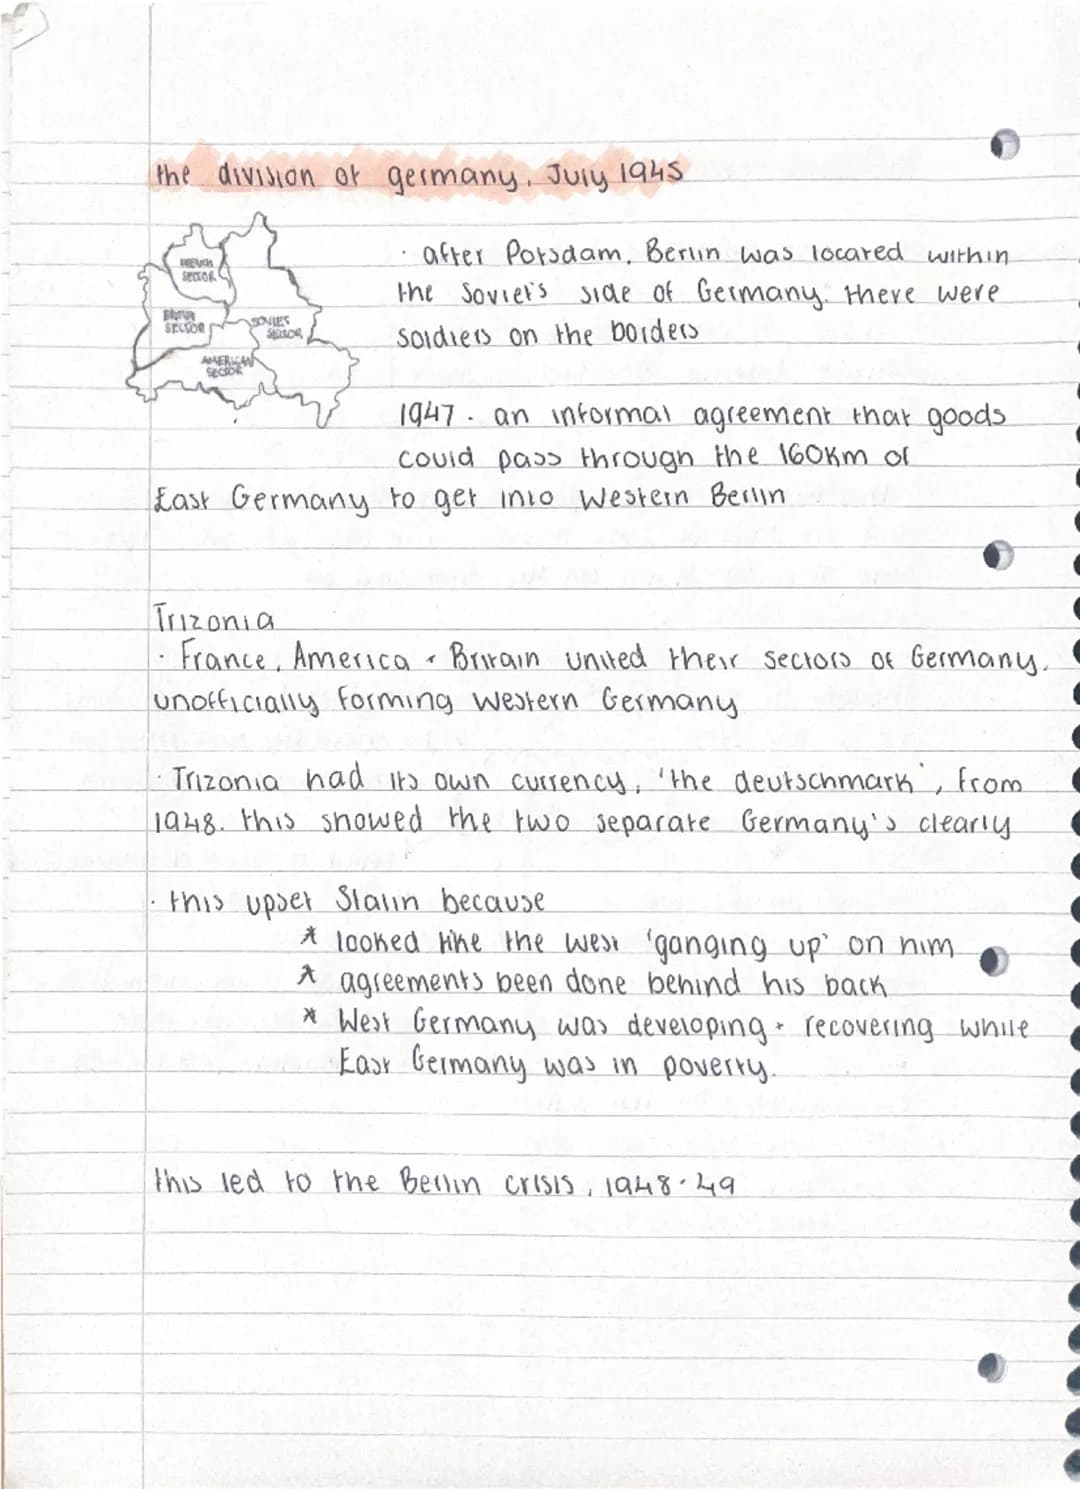 the division of germany, July 1945
FRENCH
SECTOR
BRITISH
SECTOR
SOVIET
SECTOR
AMERICAN
SECTOR
· after Potsdam, Berlin was located within
the Soviet's side of Germany. there were
soldiers on the borders
1947 · an informal agreement that goods
could pass through the 160km of
East Germany to get into Western Berlin
Trizonia
· France, America + Britain united their sectors of Germany,
unofficially forming Western Germany
· Trizonia had its own currency, 'the deutschmark', from
1948. this showed the two separate Germany's clearly
· this upset Stalin because
* looked like the west 'ganging up' on him
* agreements been done behind his back
* West Germany was developing + recovering while
East Germany was in poverty.
this led to the Berlin crisis, 1948-49